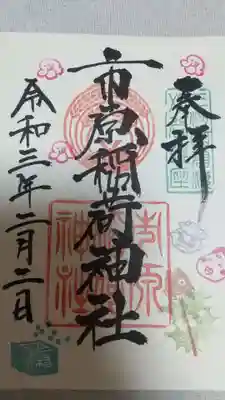 奉拝
市原稲荷神社
令和三年二月二日
市原
稲荷
神社
福